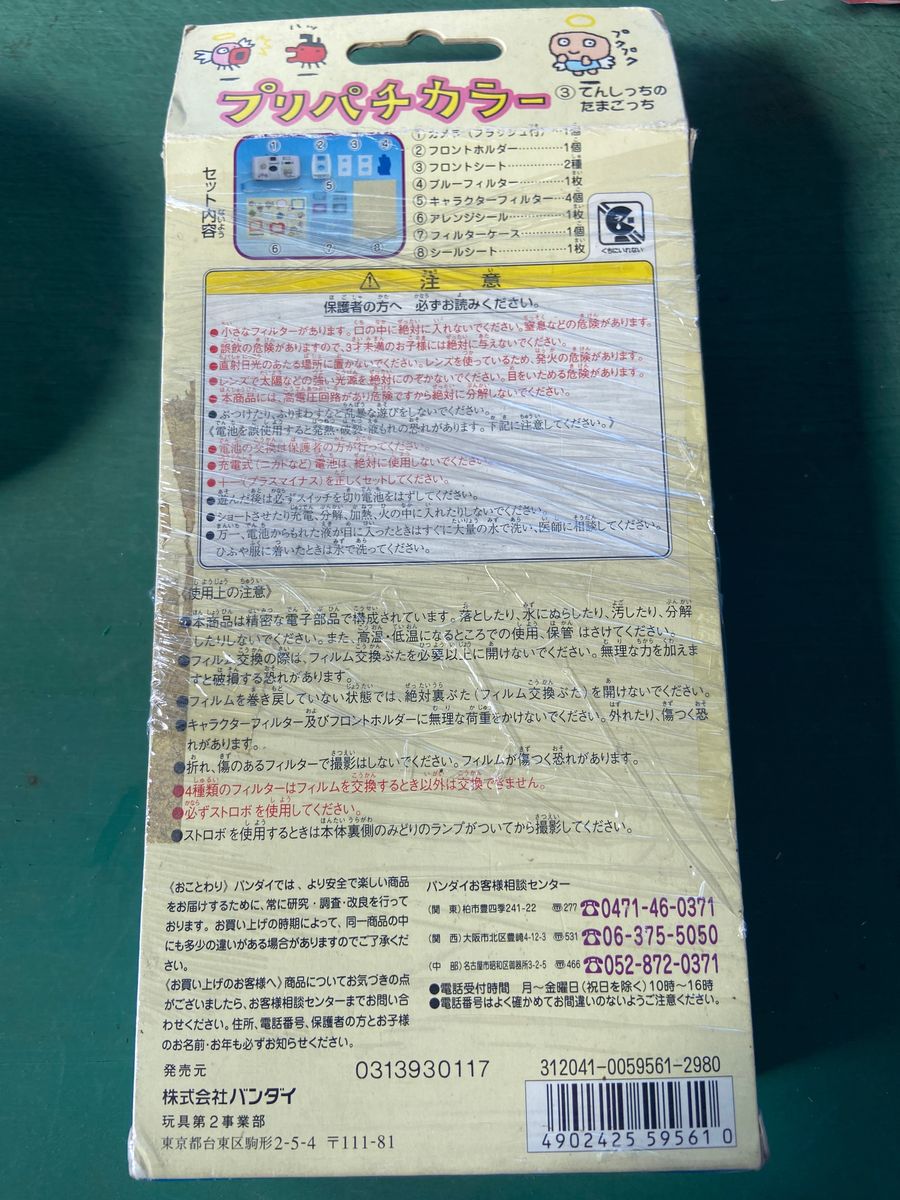 パッ
プクプク
プリパチカラー
③ てんしっちの
たまごっち
セット内容
① カメラ(フラッシュ付)…1個
② フロントホルダー…1個
③ フロントシート…2種
④ ブルーフィルター…1枚
⑤ キャラクターフィルター…4個
⑥ アレンジシール…1枚
⑦ フィルターケース…1個
⑧ シールシート…1枚
① ② ③ ④
⑤
⑥ ⑦ ⑧
くちにいれない
⚠ 注意
保護者の方へ 必ずお読みください。
●小さなフィルターがあります。口の中に絶対に入れないでください。窒息などの危険があります。
●誤飲の危険がありますので、3才未満のお子様には絶対に与えないでください。
●直射日光のあたる場所に置かないでください。レンズを使っているため、発火の危険があります。
●レンズで太陽などの強い光源を絶対にのぞかないでください。目をいためる危険があります。
●本商品には、高電圧回路があり危険ですから絶対に分解しないでください。
●ぶつけたり、ふりまわすなど乱暴な遊びをしないでください。
《電池を誤使用すると発熱・破裂・液もれの恐れがあります。下記に注意してください。》
●電池の交換は保護者の方が行ってください。
●充電式(ニカドなど)電池は、絶対に使用しないでください。
●+-(プラスマイナス)を正しくセットしてください。
●遊んだ後は必ずスイッチを切り電池をはずしてください。
●ショートさせたり充電、分解、加熱、火の中に入れたりしないでください。
●万一、電池からもれた液が目に入ったときはすぐに大量の水で洗い、医師に相談してください。
ひふや服に着いたときは水で洗ってください。
《使用上の注意》
●本商品は精密な電子部品で構成されています。落としたり、水にぬらしたり、汚したり、分解
したりしないでください。また、高温・低温になるところでの使用、保管 はさけてください。
●フィルム交換の際は、フィルム交換ぶたを必要以上に開けないでください。無理な力を加えま
すと破損する恐れがあります。
●フィルムを巻き戻していない状態では、絶対裏ぶた(フィルム交換ぶた)を開けないでください。
●キャラクターフィルター及びフロントホルダーに無理な荷重をかけないでください。外れたり、傷つく恐
れがあります。
●折れ、傷のあるフィルターで撮影はしないでください。フィルムが傷つく恐れがあります。
●4種類のフィルターはフィルムを交換するとき以外は交換できません。
●必ずストロボを使用してください。
●ストロボを使用するときは本体裏側のみどりのランプがついてから撮影してください。
《おことわり》バンダイでは、より安全で楽しい商品
をお届けするために、常に研究・調査・改良を行って
おります。お買い上げの時期によって、同一商品の中
にも多少の違いがある場合がありますのでご了承くだ
さい。
《お買い上げのお客様へ》商品についてお気づきの点
がございましたら、お客様相談センターまでお問い合
わせください。住所、電話番号、保護者の方とお子様
のお名前・お年も必ずお知らせください。
バンダイお客様相談センター
(関 東)柏市豊四季241-22 〒277 ☎0471-46-0371
(関 西)大阪市北区豊崎4-12-3 〒531 ☎06-375-5050
(中 部)名古屋市昭和区御器所3-2-5 〒466 ☎052-872-0371
●電話受付時間 月~金曜日(祝日を除く)10時~16時
●電話番号はよく確かめてお間違いのないようご注意ください。
発売元
株式会社バンダイ
玩具第2事業部
東京都台東区駒形2-5-4 〒111-81
0313930117
312041-0059561-2980
4902425 595610